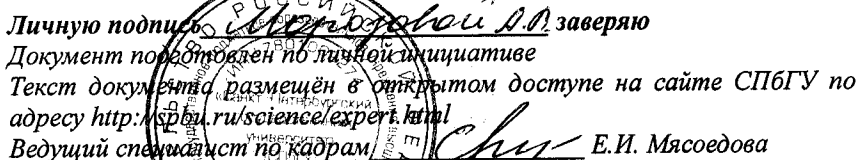 Личную подпись Морозовой А.В. заверяю
Документ подготовлен по личной инициативе
Текст документа размещён в открытом доступе на сайте СПбГУ по
адресу http://spbu.ru/science/expert.html
Ведущий специалист по кадрам Е.И. Мясоедова